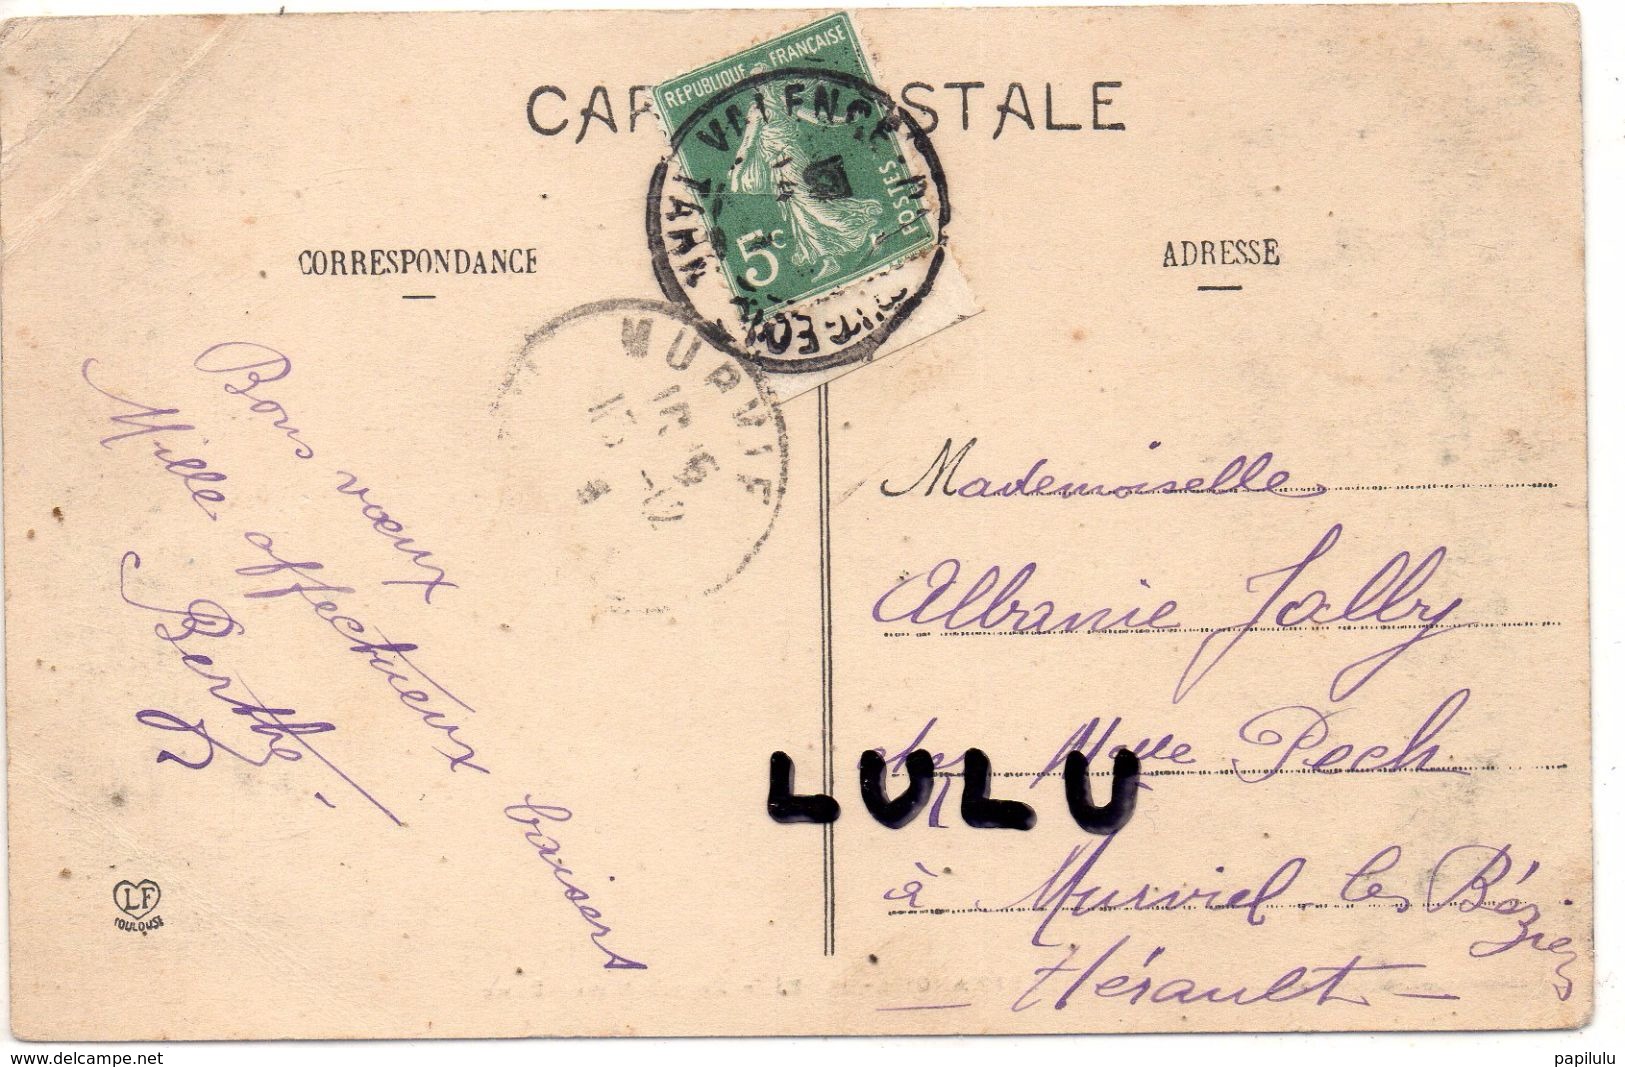 CARTE POSTALE
REPUBLIQUE FRANÇAISE
POSTES
5c
VALENCE
TARN
CORRESPONDANCE
ADRESSE
MURVIEL
Bons vœux
Mille affectueux baisers
Berthe
Mademoiselle
Albanie Jally
chez Mme Pech
à Murviel-les Béziers
Hérault
LULU
LF
TOULOUSE
www.delcampe.net
papilulu